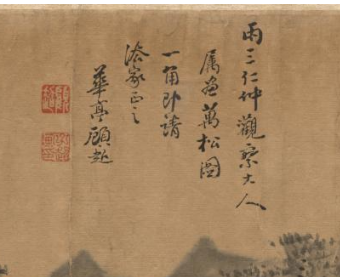 雨三仁仲觀察大人
屬畫萬松圖
一角即請
法家正之
華亭顧超